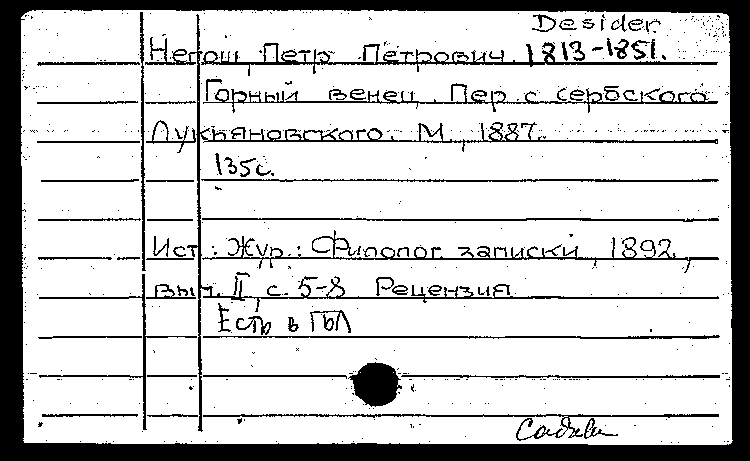 Desider.
Негош, Петр Петрович. 1813-1851.
Горный венец. Пер. с сербского
Лукьяновского. М., 1887.
135с.
Ист.: Жур.: Филолог. записки, 1892,
вып. II, с. 5-8 Рецензия
Есть в ГБЛ